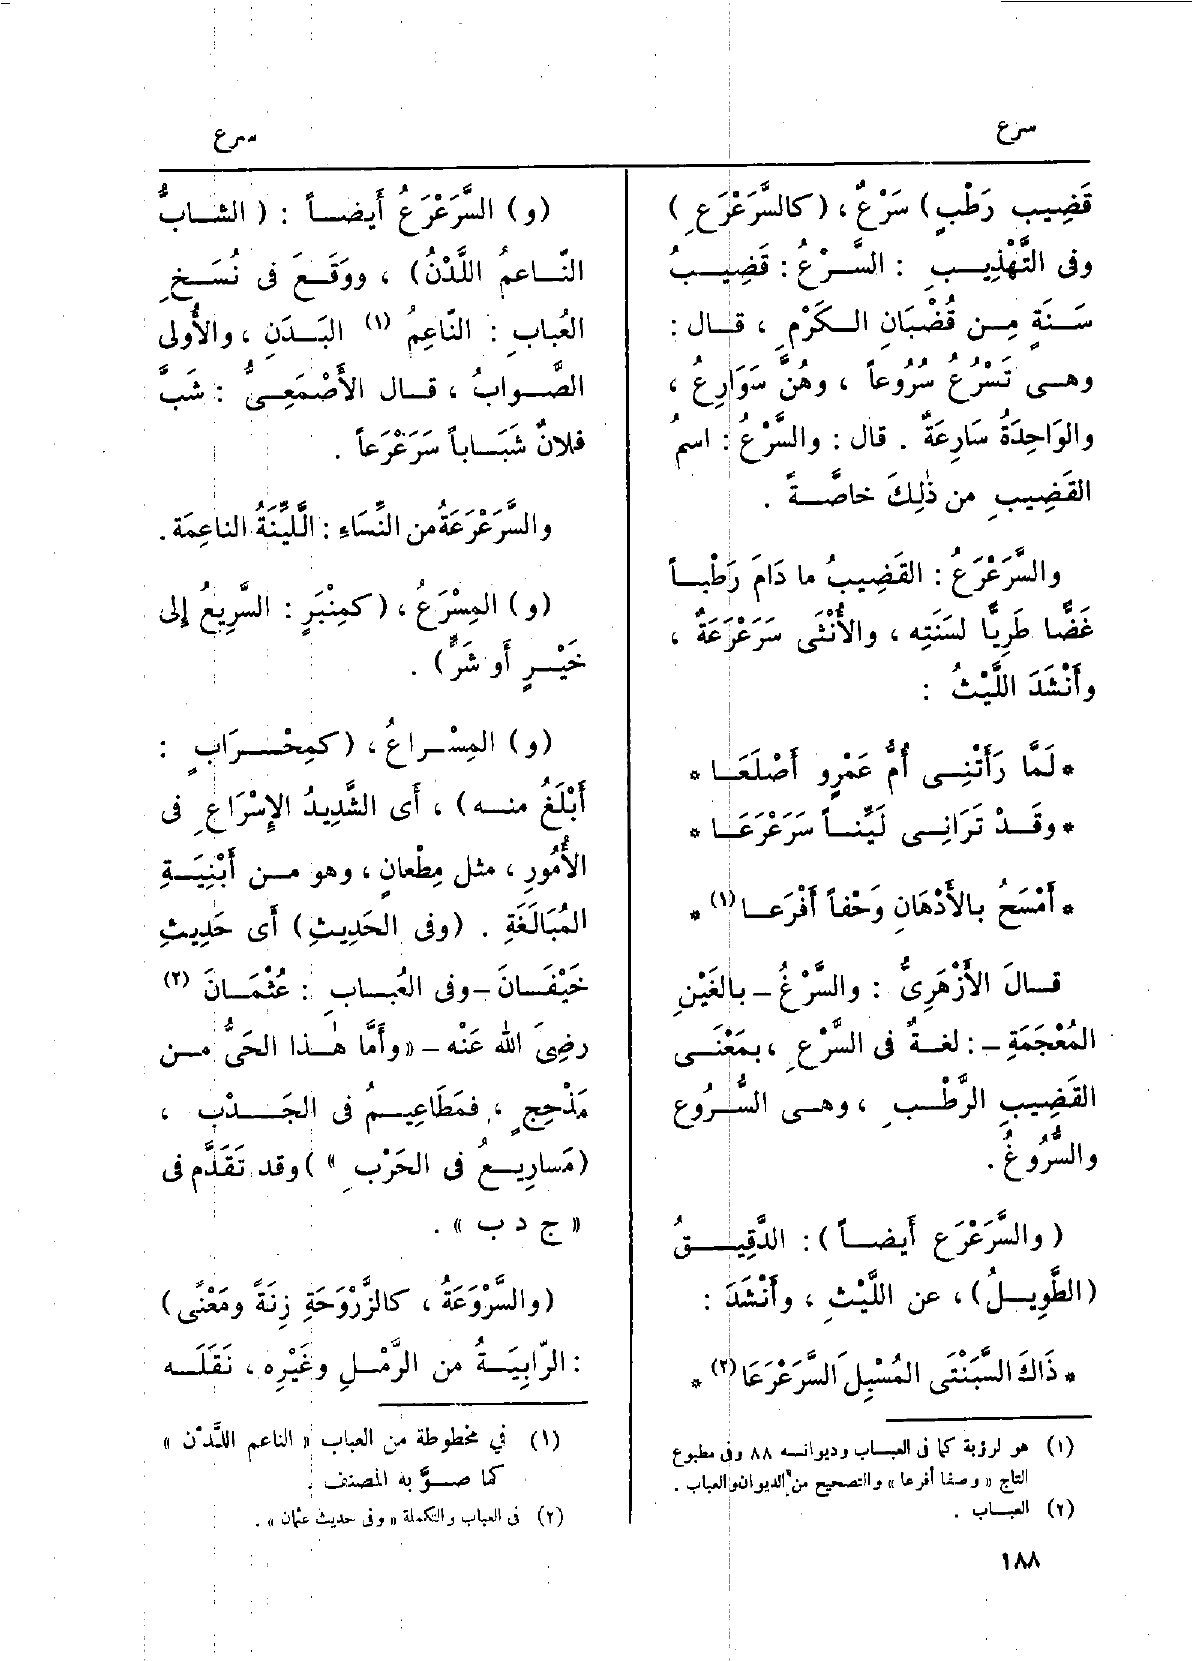 سرع
سرع
قَضِيب رَطْبٍ) سَرْعٌ، (كالسَّرَعْرَعِ)
وفى التَّهْذِيبِ : السَّرْعُ : قَضِيبُ
سَنَةٍ مِن قُضْبَانِ الكَرْمِ ، قال :
وهى تَسْرُعُ سُرُوعاً ، وهُنَّ سَوَارِعُ ،
والوَاحِدَةُ سَارِعَةٌ . قال : والسَّرْعُ : اسمُ
القَضِيبِ من ذٰلِكَ خاصَّةً .
والسَّرَعْرَعُ : القَضِيبُ ما دَامَ رَطْباً
غَضًّا طَرِيًّا لسَنَتِه ، والأُنْثَى سَرَعْرَعَةٌ ،
وأَنْشَدَ اللَّيْثُ :
* لَمَّا رَأَتْنِى أُمُّ عَمْرٍو أَصْلَعَا *
* وقَدْ تَرَانِى لَيِّناً سَرَعْرَعَا *
* أَمْسَحُ بالأَدْهَانِ وَحْفاً أَفْرَعا (١) *
قالَ الأَزْهَرِىُّ : والسَّرْغُ – بالغَيْنِ
المُعْجَمَةِ – : لغةٌ فى السَّرْعِ ، بمَعْنَى
القَضِيبِ الرَّطْبِ ، وهى السُّرُوع
والسُّرُوغُ .
(والسَّرَعْرَع أَيضاً) : الدَّقِيقُ
(الطَّوِيلُ) ، عن اللَّيْثِ ، وأَنْشَدَ :
* ذَاكَ السَّبَنْتَى المُسْبِلَ السَّرَعْرَعَا (٢) *
(١) هو لرؤبة كما فى العباب وديوانه ٨٨ وفى مطبوع
التاج « وصفا أفرعا » والتصحيح من الديوان والعباب .
(٢) العباب .
١٨٨
(و) السَّرَعْرَعُ أَيضاً : (الشابُّ
النّاعمُ اللَّدْنُ) ، ووَقَعَ فى نُسَخِ
العُبابِ : النّاعِمُ (١) البَدَنِ ، والأُولى
الصَّوابُ ، قال الأَصْمَعِىُّ : شَبَّ
فلانٌ شَبَاباً سَرَعْرَعاً .
والسَّرَعْرَعَةُ من النِّسَاءِ : اللَّيِّنَةُ الناعِمَة .
(و) المِسْرَعُ ، (كمِنْبَرٍ : السَّرِيعُ إلى
خَيْرٍ أَو شَرٍّ) .
(و) المِسْراعُ ، (كمِحْرَابٍ :
أَبْلَغُ منه) ، أَى الشَّدِيدُ الإِسْرَاعِ فى
الأُمُورِ ، مثل مِطْعانٍ ، وهو من أَبْنِيَةِ
المُبَالَغَةِ . (وفى الحَدِيثِ) أَى حَدِيثِ
خَيْفَانَ – وفى العُبابِ : عُثْمَانَ (٢)
رضِىَ الله عَنْه – «وأَمَّا هٰذا الحَىُّ من
مَذْحِجٍ ، فمَطَاعِيمُ فى الجَدْبِ ،
(مَسارِيعُ فى الحَرْبِ ») وقد تَقَدَّم فى
« ج د ب » .
(والسَّرْوَعَةُ ، كالزَّرْوَحَةِ زِنَةً ومَعْنًى)
: الرّابِيَةُ من الرَّمْلِ وغَيْرِه ، نَقَلَه
(١) في مخطوطة من العباب « الناعم اللَّدْن »
كما صوَّبه المصنف .
(٢) فى العباب والتكملة « وفى حديث عثمان » .